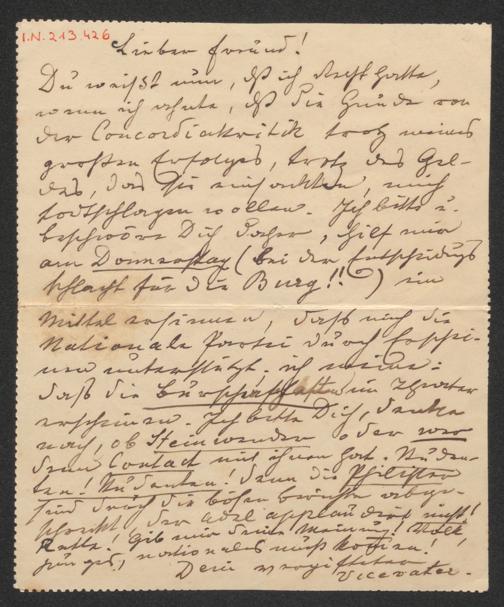 I.N. 213.426
Lieber Freund!
Du weißt nun, dß ich Recht hatte,
wenn ich ahnte, dß die Hunde von
der Concordiakritik trotz meines
großen Erfolges, trotz des Gel-
des, das sie einsackten, mich
todtschlagen wollen. Ich bitte u.
beschwöre Dich daher, hilf mir
am Donnerstag (bei der Entscheidungs
schlacht für die Burg!!) ein
Mittel ersinnen, daß mich die
Nationale Partei durch Erschei-
nen unterstützt. ich meine:
daß die Burschenschaften im Theater
erscheinen. Ich bitte Dich, denke
nach, ob Steinwender oder wer
denn Contact mit ihnen hat. Studen-
ten! Studenten! denn die Philister
sind durch die bösen Berichte abge-
schreckt, der Adel applaudirt nicht!
Rathe! Gib mir Deine Meinung! Volk
junges, nationales muß kommen!
Dein vergifteter
Vicevater.